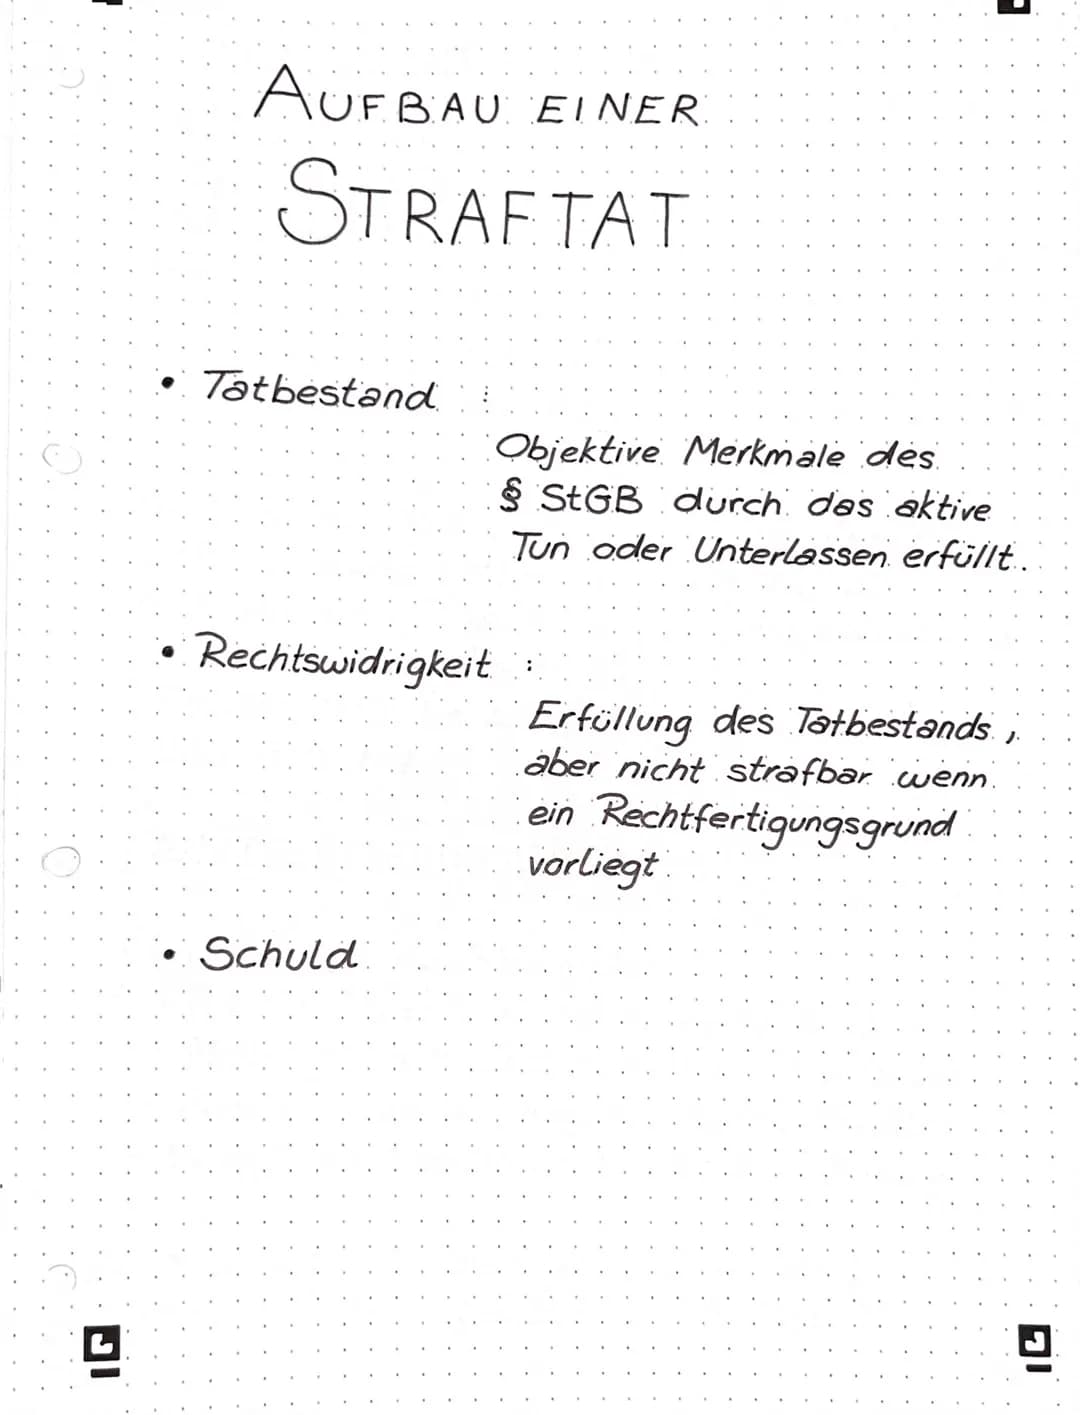 AUFBAU EINER
STRAFTAT
• Tatbestand :
Objektive Merkmale des
§ StGB durch das aktive
Tun oder Unterlassen erfüllt.
• Rechtswidrigkeit :
Erfüllung des Tatbestands,
aber nicht strafbar wenn
ein Rechtfertigungsgrund
vorliegt.
• Schuld